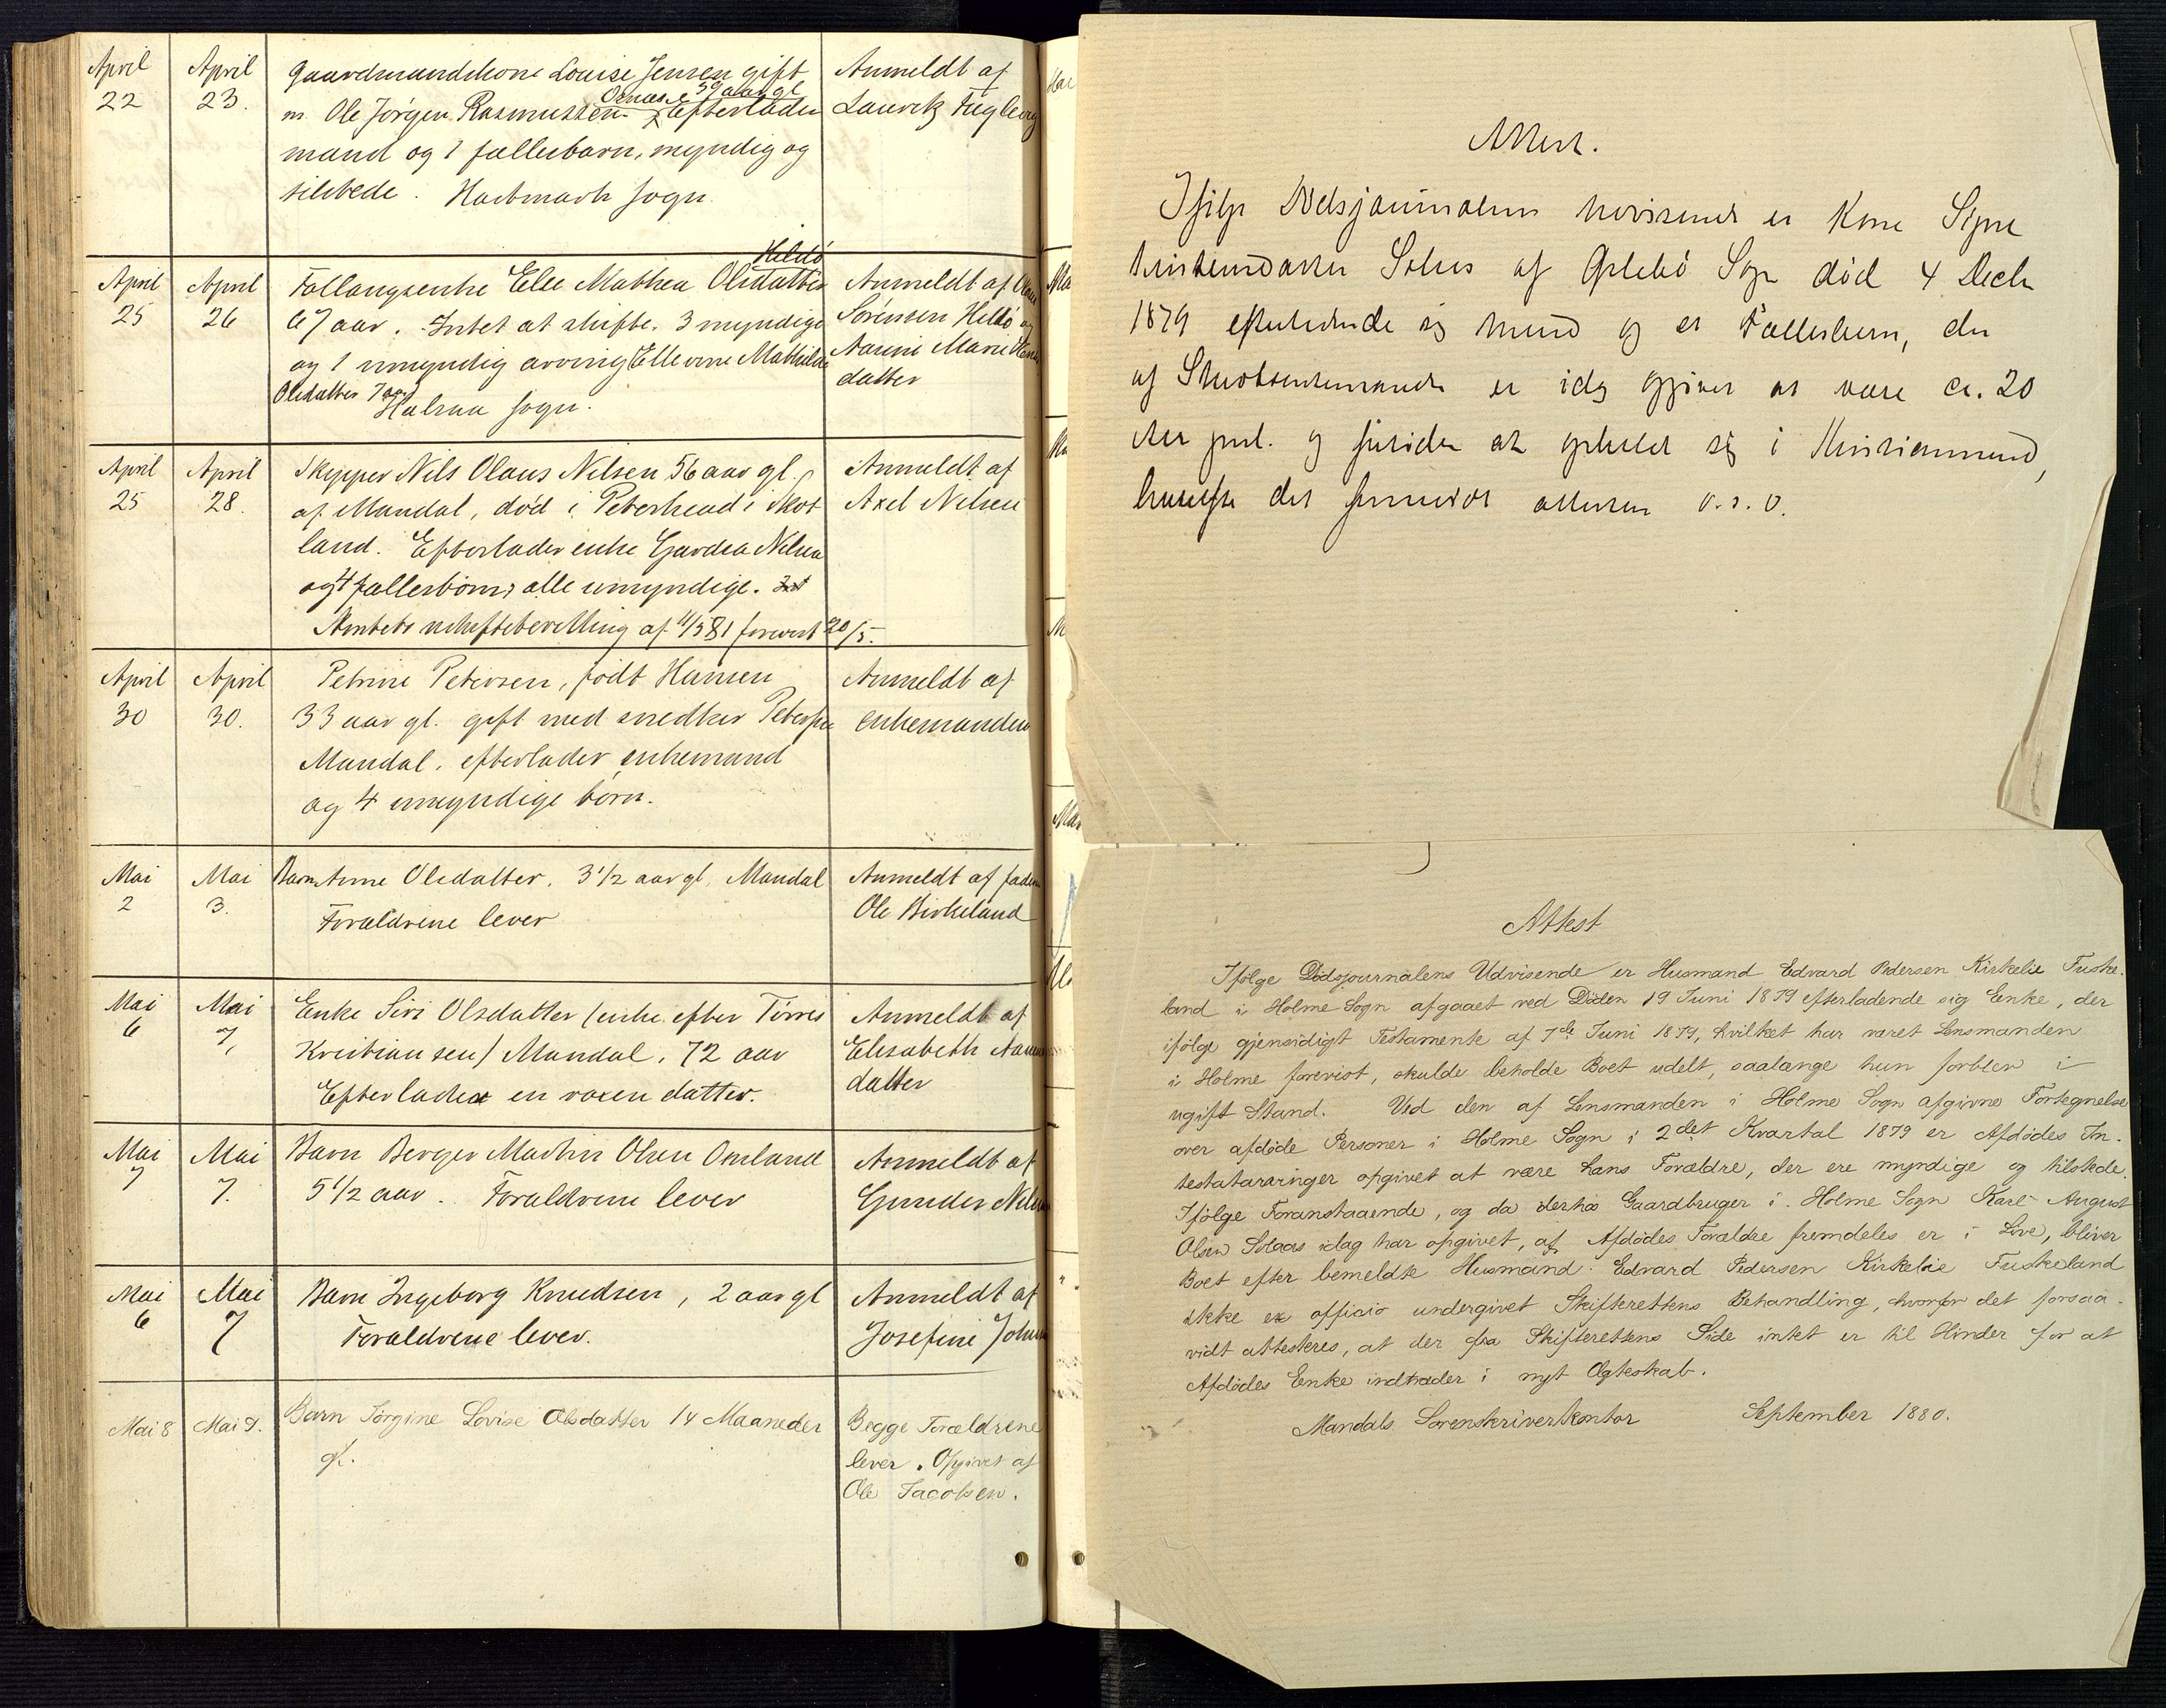 April
22
April
23.
Gaardmandskone Louise Jensen gift
Osnæs 59 aar gl
m. Ole Jørgen Rasmussen. Efterlader
mand og 1 fællesbarn, myndig og
tilstede. Halsmark sogn.
Anmeldt af
Lauritz Fugleviig
April
25
April
26
Hildø
Føllaugsenke Else Mathea Olsdatter
67 aar. Intet at skifte. 3 myndige
og 1 umyndig arving Ellevine Mathilde
Olsdatter 7 aar
Halsaa sogn.
Anmeldt af
Sørensen Hildø og
Marie
datter
April
25
April
28.
Skipper Nils Olaus Nilsen 56 aar gl.
af Mandal, død i Peterhead i Skot
land. Efterlader enke Gardea Nilsen
og 4 fællesbørn, alle umyndige.
Amtets uskiftebevilling af 11/5 81 forevist 20/5.
Anmeldt af
Axel Nilsen
April
30
April
30.
Petrine Petersen, født Hansen
33 aar gl. gift med snedker Petersen
Mandal. efterlader enkemand
og 4 umyndige børn.
Anmeldt af
enkemanden
Mai
2
Mai
3.
Barn Anne Olsdatter. 3 1/2 aar gl. Mandal
Forældrene lever
Anmeldt af faderen
Ole Birkeland
Mai
6
Mai
7,
Enke Siri Olsdatter (enke efter Tørres
Kristiansen) Mandal. 72 aar
Efterlader en voxen datter.
Anmeldt af
Elisabeth
datter
Mai
7
Mai
7.
Barn Berger Martin Olsen Omland
5 1/2 aar. Forældrene lever
Anmeldt af
Gunder Nilsen
Mai
6
Mai
7
Barn Ingeborg Knudsen, 2 aar gl
Forældrene lever.
Anmeldt af
Josefine
Mai 8
Mai 9.
Barn Jørgine Lovise Olsdatter 14 Maaneder
gl.
Begge Forældrene
lever. Opgivet af
Ole Jacobsen.
Attest.
Ifølge Dødsjournalens Udvisende er Kone Signe
Kristensdatter af Øslebø Sogn død 4 Decbr
1879 efterladende sig Mand og et Fællesbarn, der
af Skudsmalsmænd er idag opgivet at være ca. 20
Aar gml. og forøvrigt at opholde sig i Kristianssand,
hvorefter det attesteres o.s.v.
Attest
Ifølge Dødsjournalens Udvisende er Husmand Edvard Pedersen Kirkelie Fuske-
land i Holme Sogn afgaaet ved Døden 19 Juni 1879 efterladende sig Enke, der
ifølge gjensidigt Testamente af 7de Juni 1879, hvilket har været Lensmanden
i Holme forevist, skulde beholde Boet udelt, saalænge hun forblev i
ugift Stand. Ved den af Lensmanden i Holme Sogn afgivne Fortegnelse
over afdøde Personer i Holme Sogn i 2det Kvartal 1879 er Afdødes In-
testatararvinger opgivet at være hans Forældre, der ere myndige og tilstede.
Ifølge Foranstaaende, og da derhos Gaardbruger i Holme Sogn Karl August
Olsen Solaas idag har opgivet, at Afdødes Forældre fremdeles er i Live, bliver
Boet efter bemeldte Husmand Edvard Pedersen Kirkelie Fuskeland
ikke ex officio undergivet Skifterettens Behandling, hvorfor det forsaa-
vidt attesteres, at der fra Skifterettens Side intet er til Hinder for at
Afdødes Enke indtræder i nyt Ægteskab.
Mandals Sorenskriverkontor September 1880.